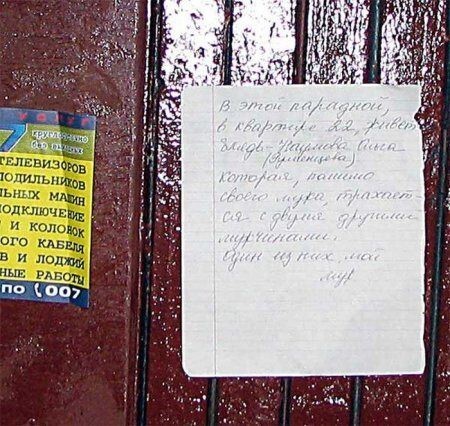 круглосуточно
без выходных
ТЕЛЕВИЗОРОВ
ПОДКЛЮЧЕНИЕ
И КОЛОНОК
ОГО КАБЕЛЯ
В И ЛОДЖИЙ
НЫЕ РАБОТЫ
ПО (007
В этой парадной,
в квартире 22, живёт
Наумова Ольга
которая, помимо
своего мужа, трахает-
ся с двумя другими
мужчинами.
Один из них, мой
муж